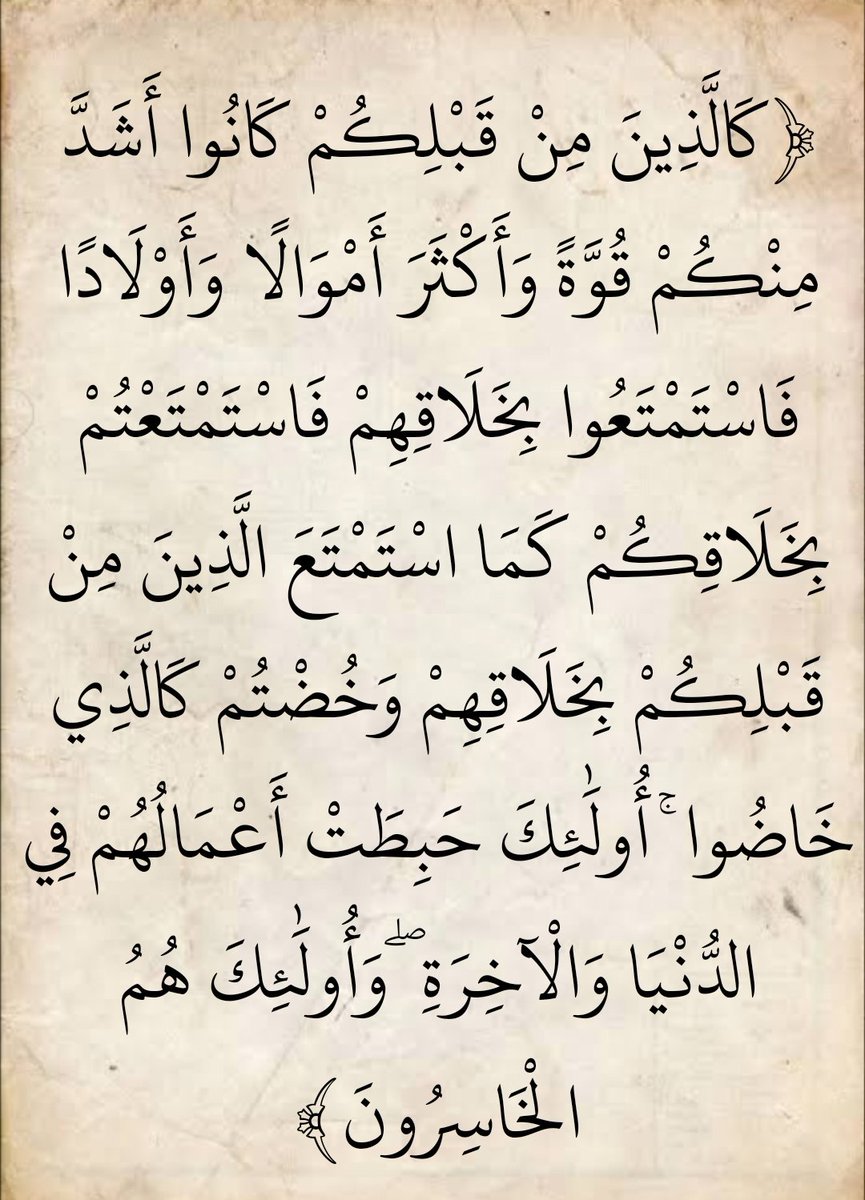 ﴿كَالَّذِينَ مِنْ قَبْلِكُمْ كَانُوا أَشَدَّ
مِنْكُمْ قُوَّةً وَأَكْثَرَ أَمْوَالًا وَأَوْلَادًا
فَاسْتَمْتَعُوا بِخَلَاقِهِمْ فَاسْتَمْتَعْتُمْ
بِخَلَاقِكُمْ كَمَا اسْتَمْتَعَ الَّذِينَ مِنْ
قَبْلِكُمْ بِخَلَاقِهِمْ وَخُضْتُمْ كَالَّذِي
خَاضُوا ۚ أُولَٰئِكَ حَبِطَتْ أَعْمَالُهُمْ فِي
الدُّنْيَا وَالْآخِرَةِ ۖ وَأُولَٰئِكَ هُمُ
الْخَاسِرُونَ﴾